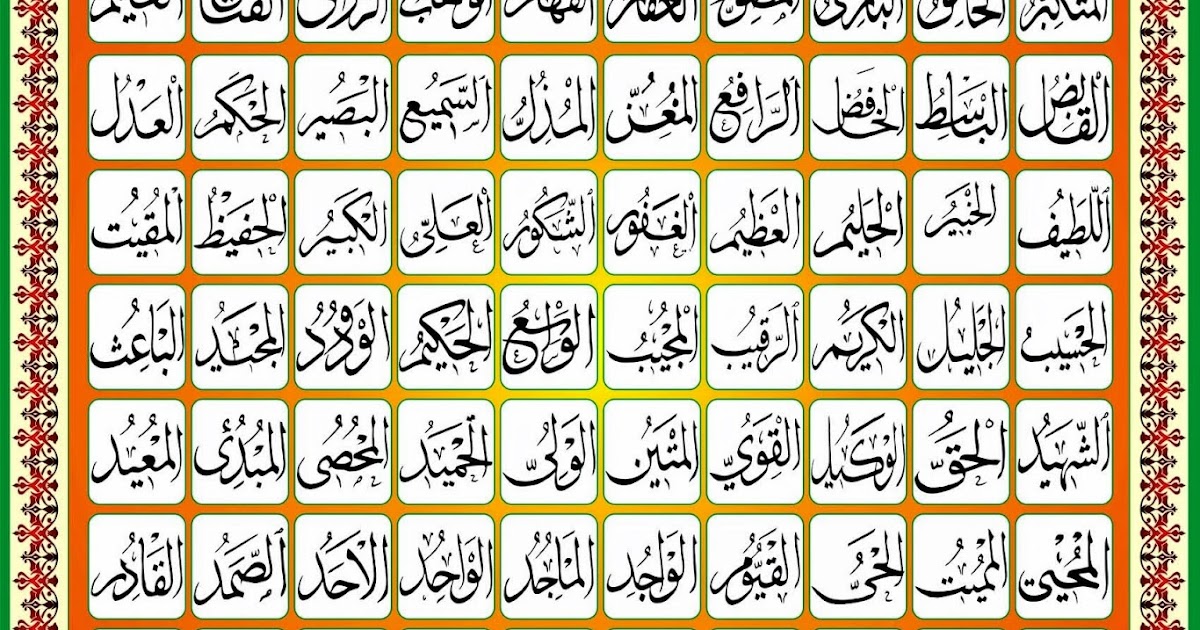 المتكبر الخالق البارئ المصور الغفار القهار الوهاب الرزاق الفتاح العليم
القابض الباسط الخافض الرافع المعز المذل السميع البصير الحكم العدل
اللطيف الخبير الحليم العظيم الغفور الشكور العلي الكبير الحفيظ المقيت
الحسيب الجليل الكريم الرقيب المجيب الواسع الحكيم الودود المجيد الباعث
الشهيد الحق الوكيل القوي المتين الولي الحميد المحصي المبدئ المعيد
المحيي المميت الحي القيوم الواجد الماجد الواحد الاحد الصمد القادر